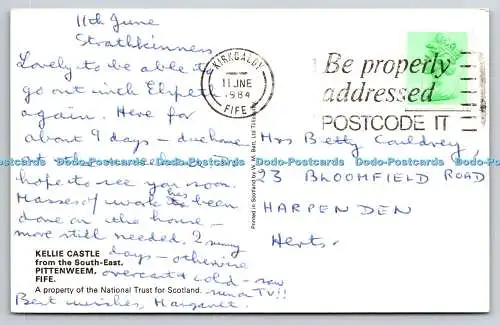 11th June
Strathkinness
Lovely to be able to
go out inch
again. Here for
about 9 days -
hope to see you soon.
Masses of work has been
done on the house -
more still needed. 2 sunny
days - otherwise
overcast & cold - saw
Best wishes, Margaret.
KELLIE CASTLE
from the South-East.
PITTENWEEM,
FIFE.
A property of the National Trust for Scotland.
KIRKCALDY
11 JNE
1984
FIFE
Be properly
addressed
POSTCODE IT
Mrs Betty
93 BLOOMFIELD ROAD
HARPENDEN
Herts.
Dodo-Postcards Dodo-Postcards Dodo-Postcards Dodo-Postcards Dodo-Postcards Dodo-Postcards